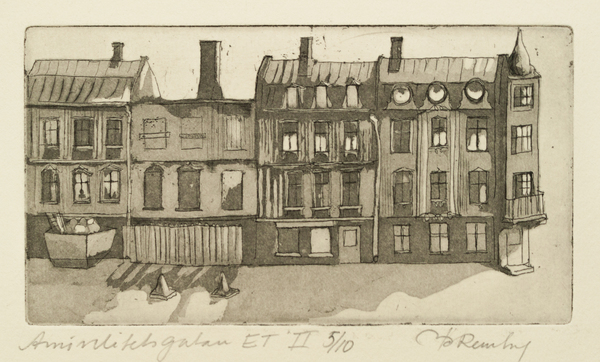 Amiralitetsgatan ET II 5/10